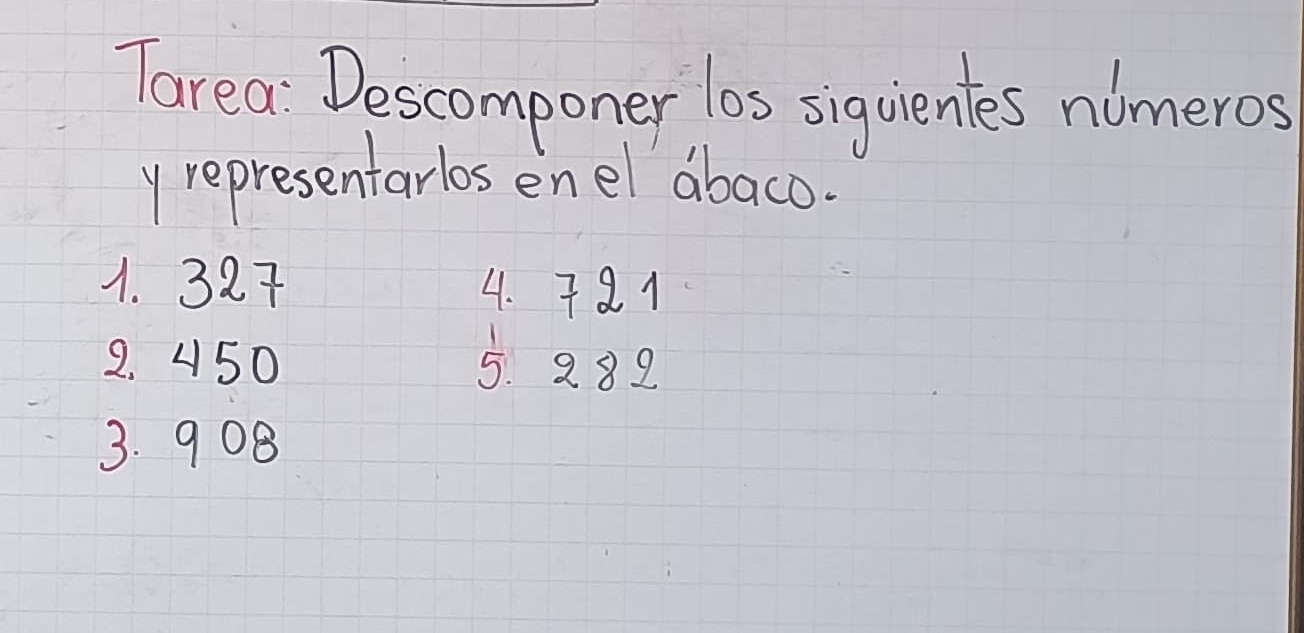 Tarea: Descomponer los siguientes números
y representarlos en el ábaco.
1. 327 4. 721
2. 450 5. 282
3. 908